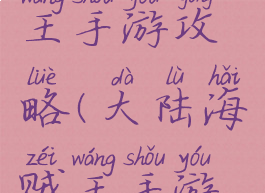 wáng shǒu yóu gōng
王手游攻
lüè dà lù hǎi
略(大陆海
zéi wáng shǒu yóu
贼王手游